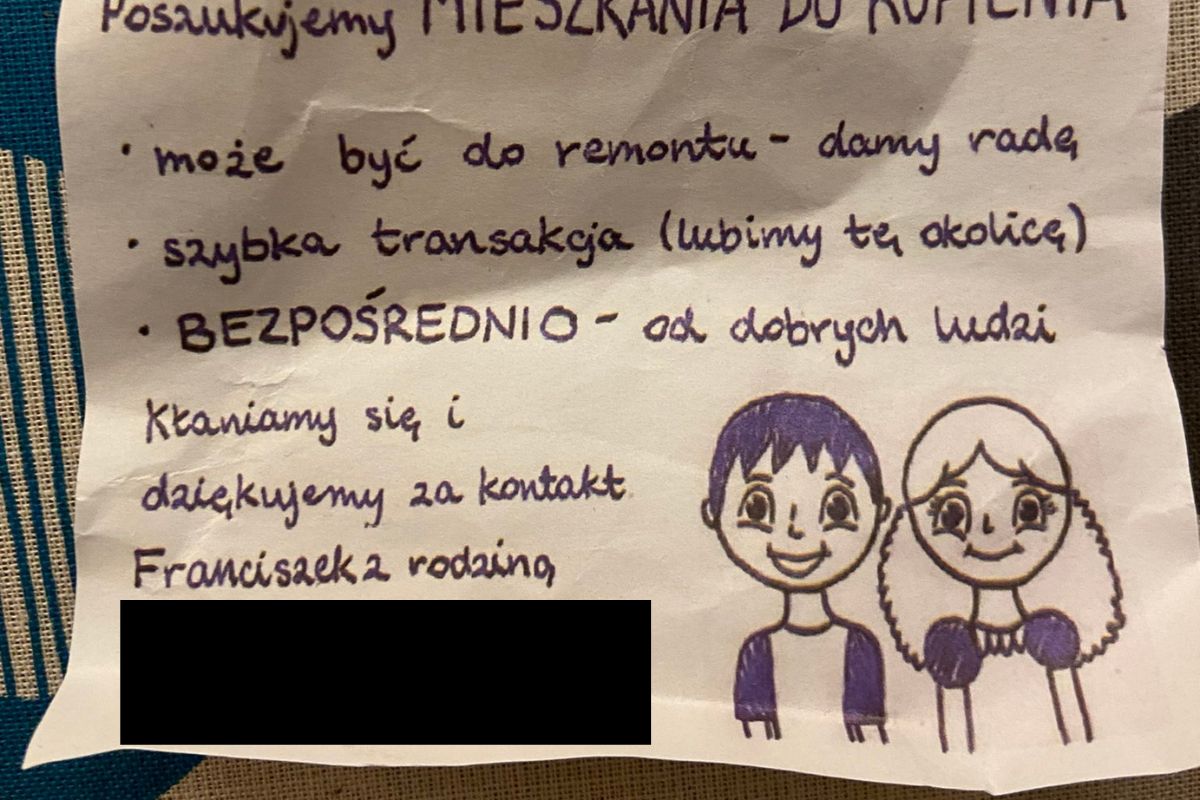 Poszukujemy MIESZKANIA DO KUPIENIA
• może być do remontu - damy radę
• szybka transakcja (lubimy tę okolicę)
• BEZPOŚREDNIO - od dobrych ludzi
Kłaniamy się i
dziękujemy za kontakt
Franciszek z rodziną